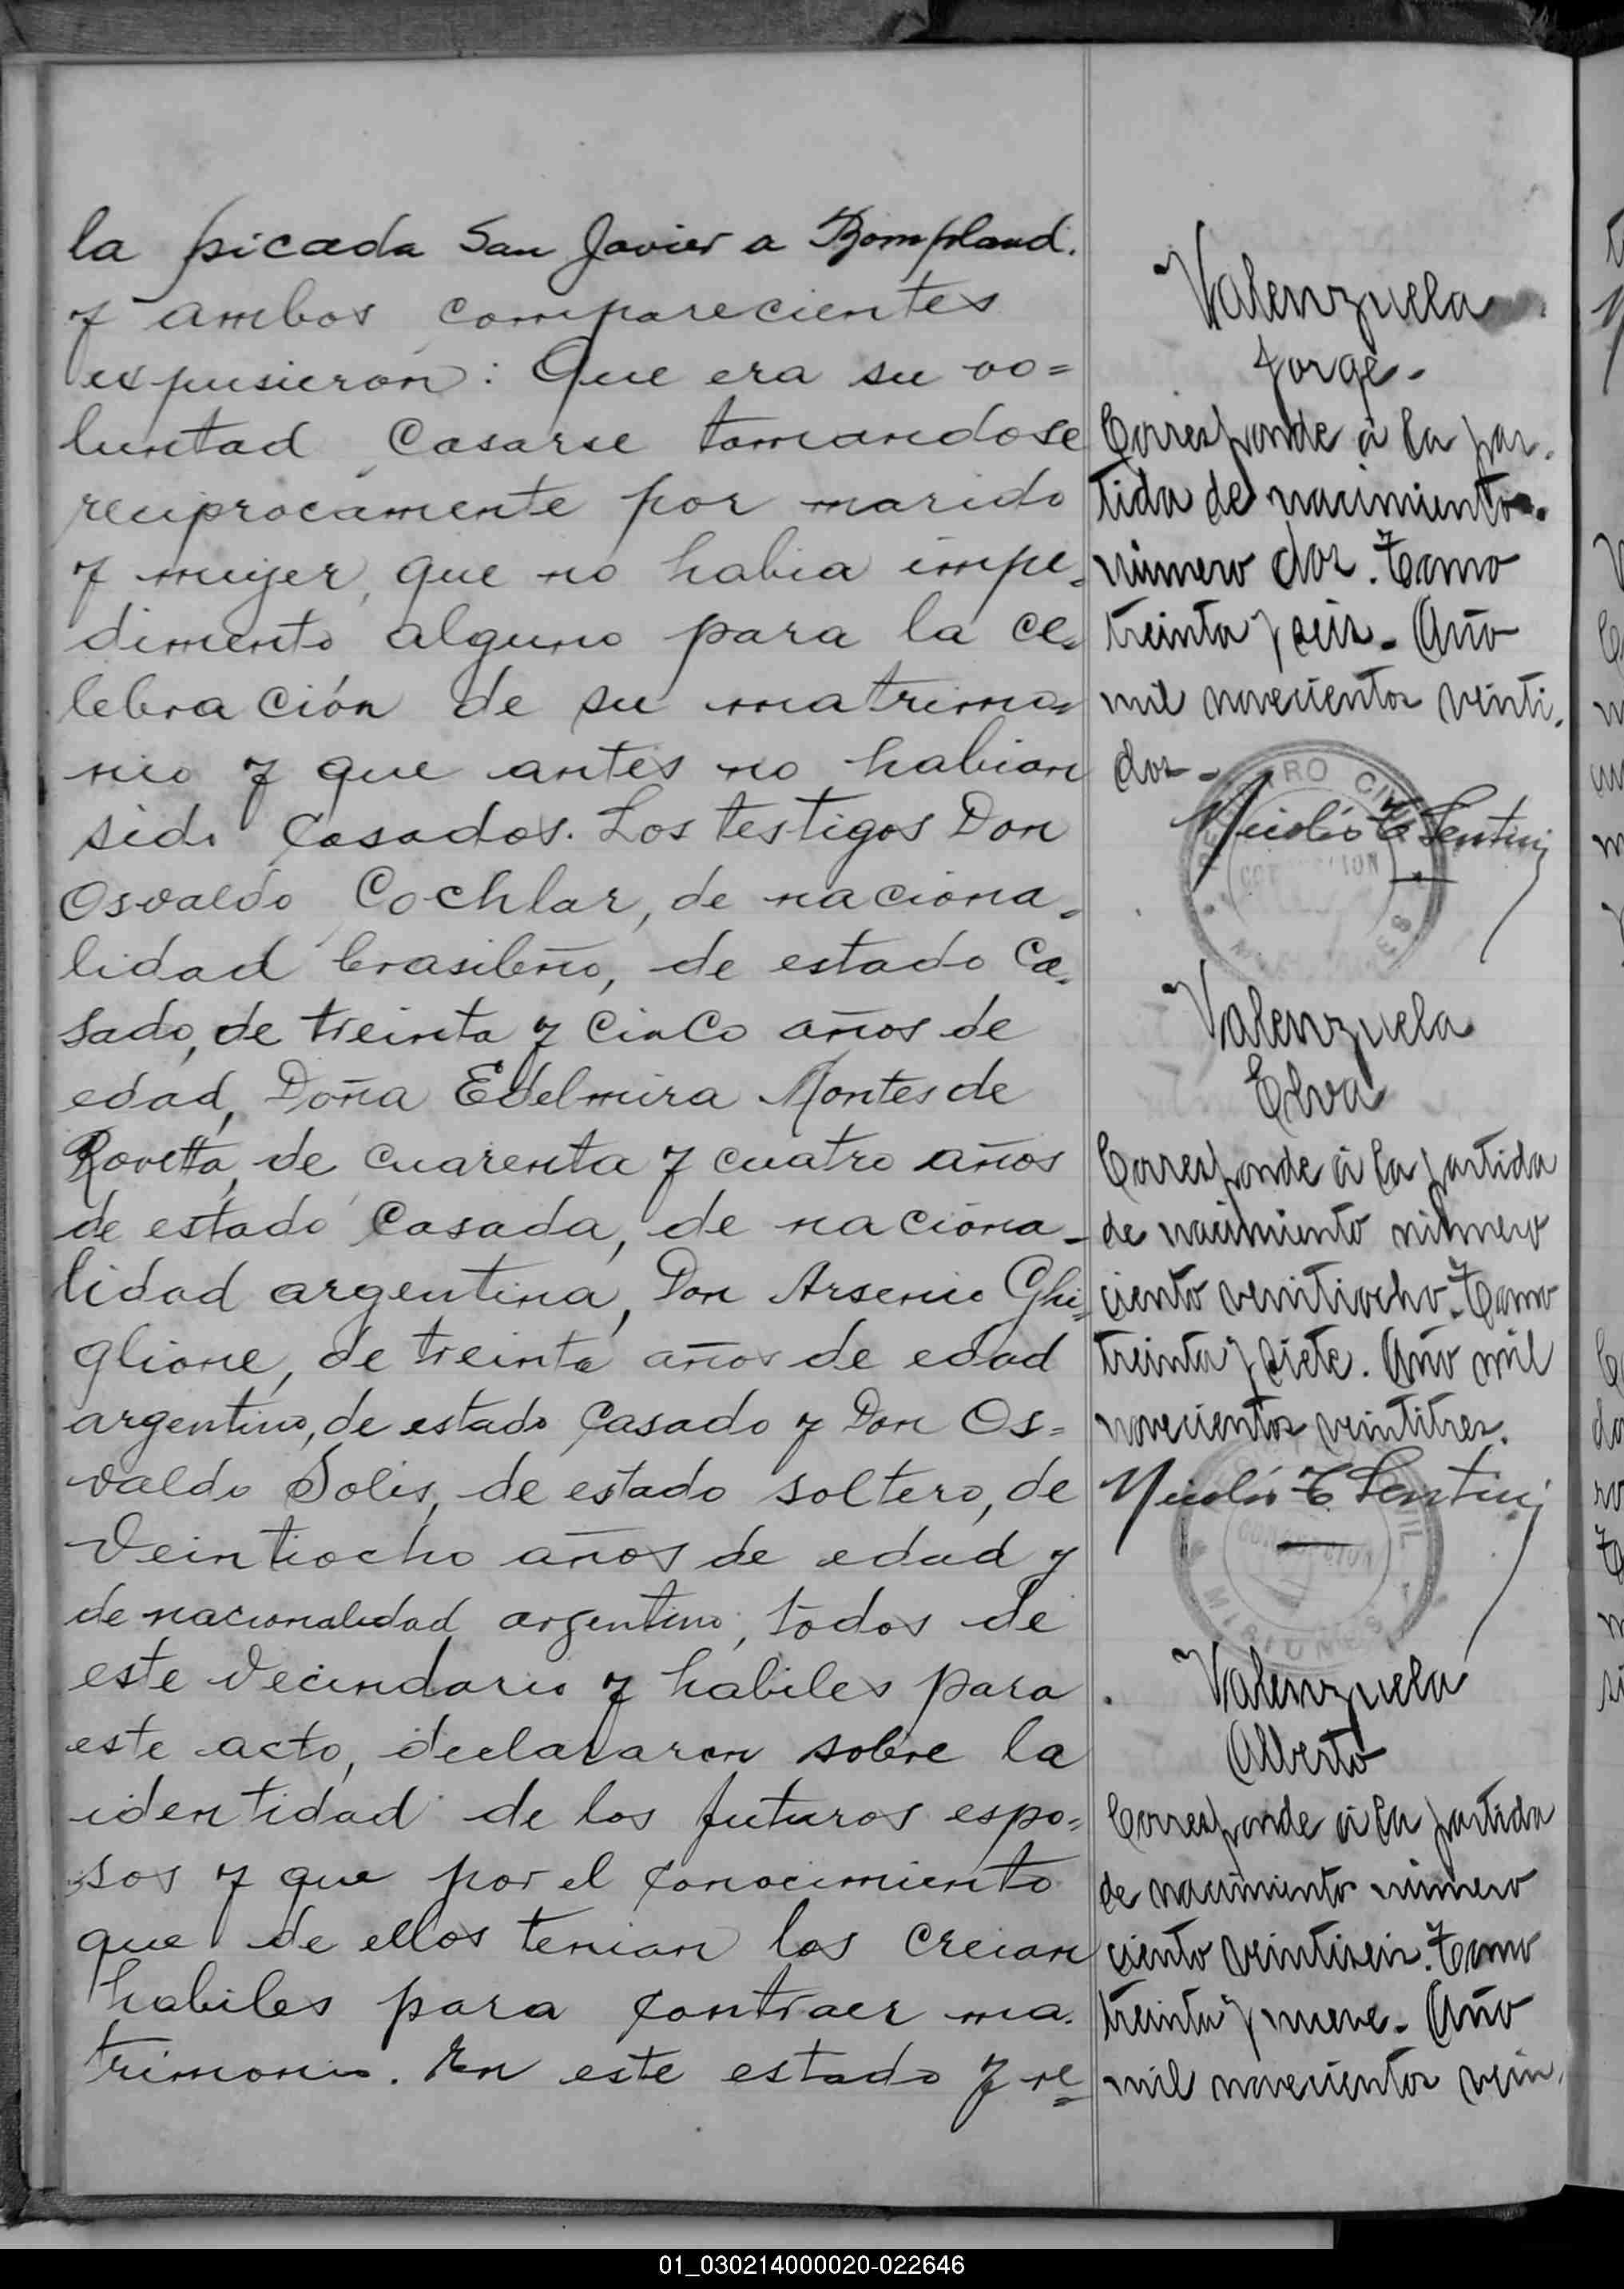 la picada San Javier a Bompland.
y ambos comparecientes
expusieron: Que era su vo=
luntad casarse tomandose
reciprocamente por marido
y mujer, que no habia impe=
dimento alguno para la ce=
lebración de su matrimo=
nio y que antes no habian
sido casados. Los testigos Don
Osvaldo Cochlar, de naciona=
lidad brasileño, de estado ca=
sado, de treinta y cinco años de
edad, Doña Edelmira Montes de
Rovetta, de cuarenta y cuatro años
de estado casada, de naciona-
lidad argentina, Don Arsenio Ghi=
glione, de treinta años de edad
argentino, de estado casado y Don Os=
valdo Solis, de estado soltero, de
veintiocho años de edad y
de nacionalidad argentino, todos de
este vecindario y habiles para
este acto, declararon sobre la
identidad de los futuros espo=
sos y que por el conocimiento
que de ellos tenian los creian
habiles para contraer ma.
trimonio. En este estado y re=
Valenzuela
Jorge.
Corresponde á la par.
tida de nacimiento.
número dos. Tomo
treinta y seis. Año
mil novecientos veinti.
dos.
REGISTRO CIVIL
MISIONES
Valenzuela
Elva
Corresponde á la partida
de nacimiento número
ciento veintiocho. Tomo
treinta y siete. Año mil
novecientos veintitres.
CIVIL
CONCEPCION
MISIONES
Valenzuela
Alberto
Corresponde á la partida
de nacimiento número
ciento veintiseis. Tomo
treinta y nueve. Año
mil novecientos vein.
01_030214000020-022646